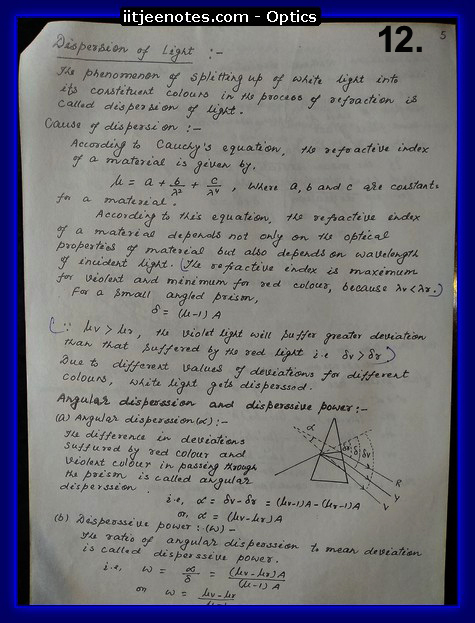 iitjeenotes.com - Optics
12.
5
Dispersion of Light :-
The phenomenon of splitting up of white light into
its constituent colours in the process of refraction is
called dispersion of light.
Cause of dispersion :-
According to Cauchy's equation, the refractive index
of a material is given by.
μ = a + b/λ² + c/λ⁴ , where a, b and c are constants
for a material.
According to this equation, the refractive index
of a material depends not only on the optical
properties of material but also depends on wavelength
of incident light. (The refractive index is maximum
for violent and minimum for red colour, because λv < λr.)
For a small angled prism,
δ = (μ-1) A
(∵ μv > μr, the violet light will suffer greater deviation
than that suffered by the red light i.e δv > δr)
Due to different values of deviations for different
colours, white light gets disperssed.
Angular disperssion and disperssive power:-
(a) Angular disperssion (α) :-
The difference in deviations
suffured by red colour and
violent colour in passing through
the prism is called angular
disperssion.
α
δr
δ
δv
R
Y
V
i.e, α = δv - δr = (μv-1)A - (μr-1)A
or, α = (μv - μr) A
(b) Disperssive power :- (ω) -
The ratio of angular disperssion to mean deviation
is called disperssive power.
i.e, ω = α/δ = (μv - μr) A/(μ-1) A
or ω = μv - μr